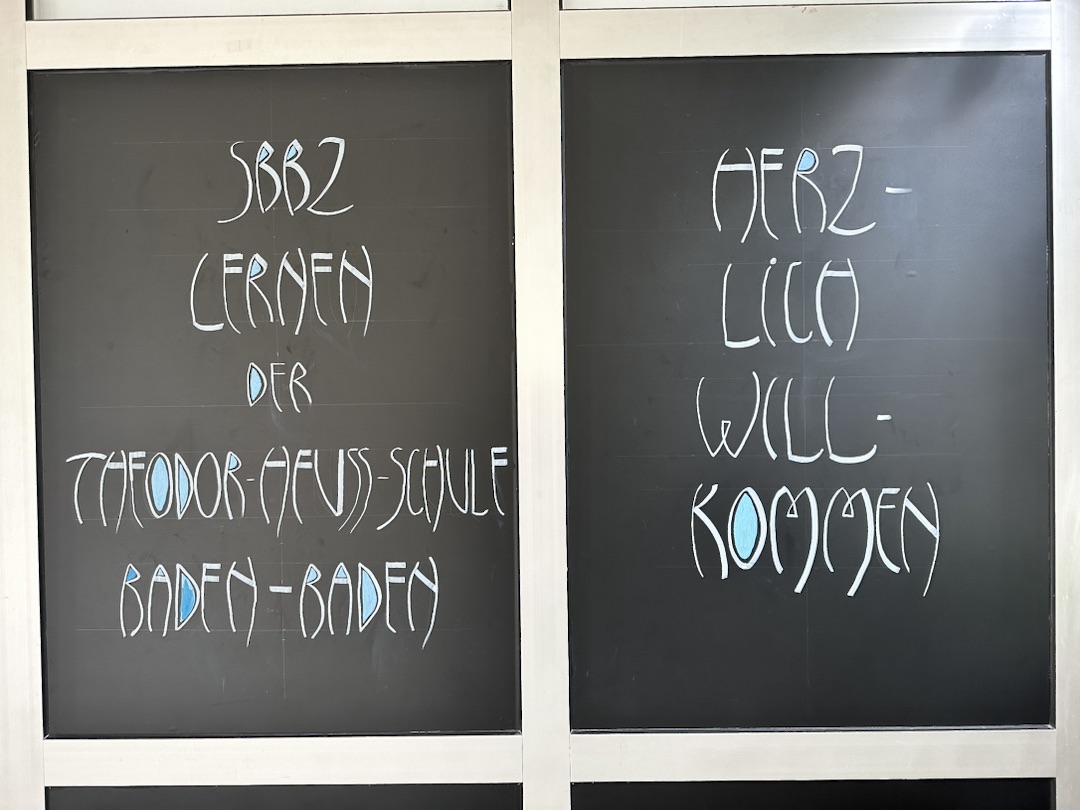 SBBZ
LERNEN
DER
THEODOR-HEUSS-SCHULE
BADEN-BADEN
HERZ-
LiCH
WILL-
KOMMEN